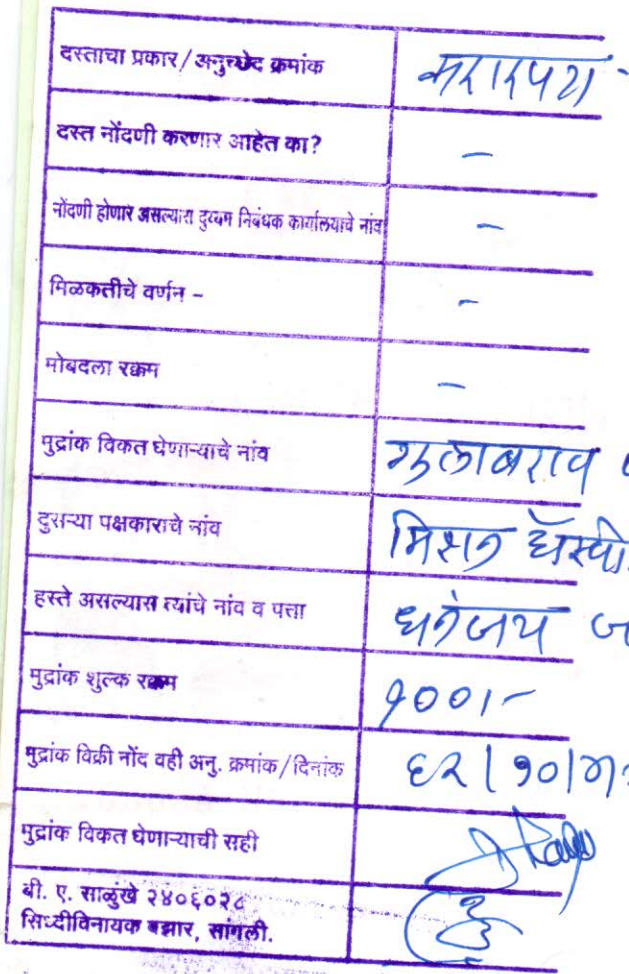 दस्ताचा प्रकार/अनुच्छेद क्रमांक करारपत्र
दस्त नोंदणी करणार आहेत का? -
नोंदणी होणार असल्यास दुय्यम निबंधक कार्यालयाचे नांव -
मिळकतीचे वर्णन - -
मोबदला रक्कम -
मुद्रांक विकत घेणाऱ्याचे नांव गुलाबराव
दुसऱ्या पक्षकाराचे नांव मिशन हॅस्पी
हस्ते असल्यास त्यांचे नांव व पत्ता धनंजय ज
मुद्रांक शुल्क रक्कम १००/-
मुद्रांक विक्री नोंद वही अनु. क्रमांक/दिनांक
मुद्रांक विकत घेणाऱ्याची सही
बी. ए. साळुंखे २४०६०२८
सिध्दीविनायक बझार, सांगली.